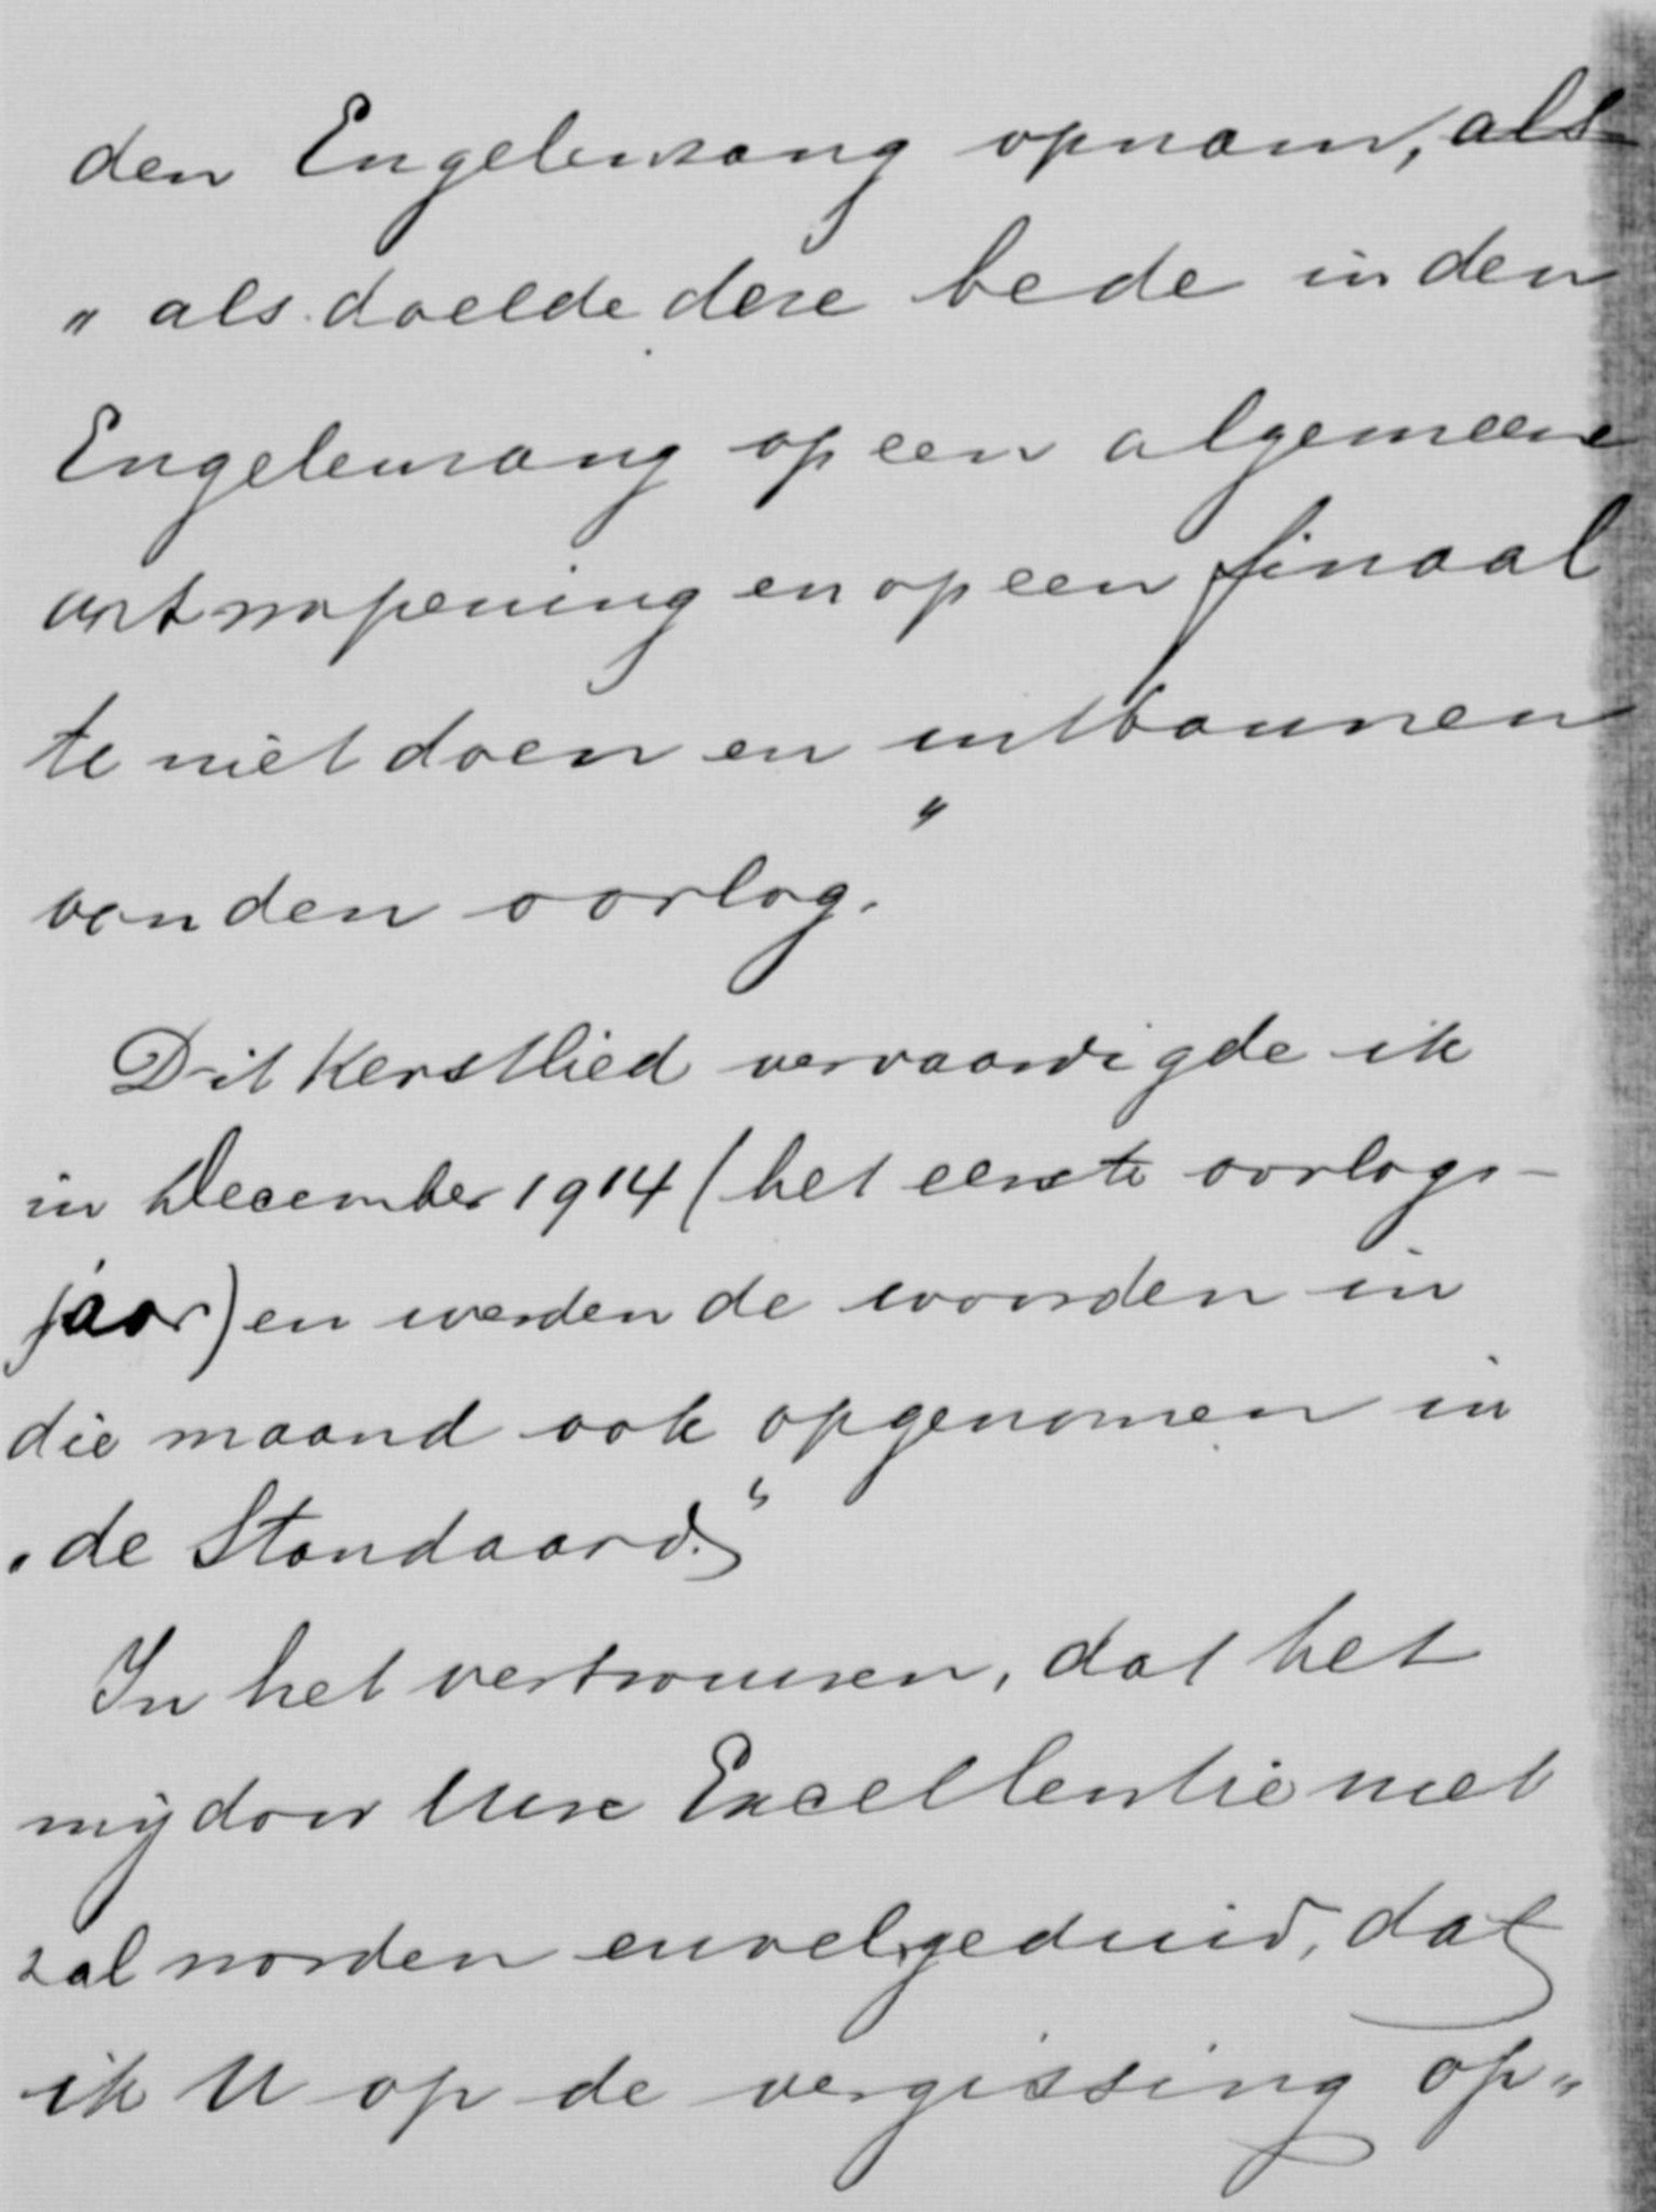 den Engelenzang opnam, als
„ als doelde deze bede in den
Engelenzang op een algemeene
ontwapening en op een finaal
te niet doen en uitbannen
van den oorlog."
Dit Kerstlied vervaardigde ik
in December 1914 (het eerste oorlogs-
jaar) en werden de woorden in
die maand ook opgenomen in
„de Standaard."
In het vertrouwen, dat het
mij door Uwe Excellentie niet
zal worden euvel geduid, dat
ik U op de vergissing op-